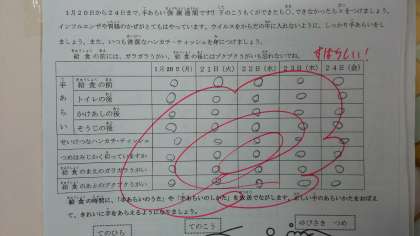 1月20日から24日まで、手あらい強調週間です!下のことができたら○、できなかったら×をつけましょう。
インフルエンザや胃腸のかぜがとてもはやっています。ウイルスをからだの中に入れないように、しっかり手あらいをし
ましょう。また、いつも清潔なハンカチ・ティッシュを身につけましょう。
給食の前には、ガラガラうがい、給食の後にはブクブクうがいも忘れないでね。
すばらしい!
1月20日(月) 21日(火) 22日(水) 23日(木) 24日(金)
手あらい
給食の前
トイレの後
かけあしの後
そうじの後
せいけつなハンカチ・ティッシュ
つめはみじかく切っていますか
給食のまえのガラガラうがい
給食のあとのブクブクうがい
給食の時間に、「手あらいのうた」や「手あらいのしかた」を放送でながします。正しい手のあらいかたをおぼえ
て、きれいに手をあらえるようになりましょう。
てのひら
てのこう
ゆびさき つめ